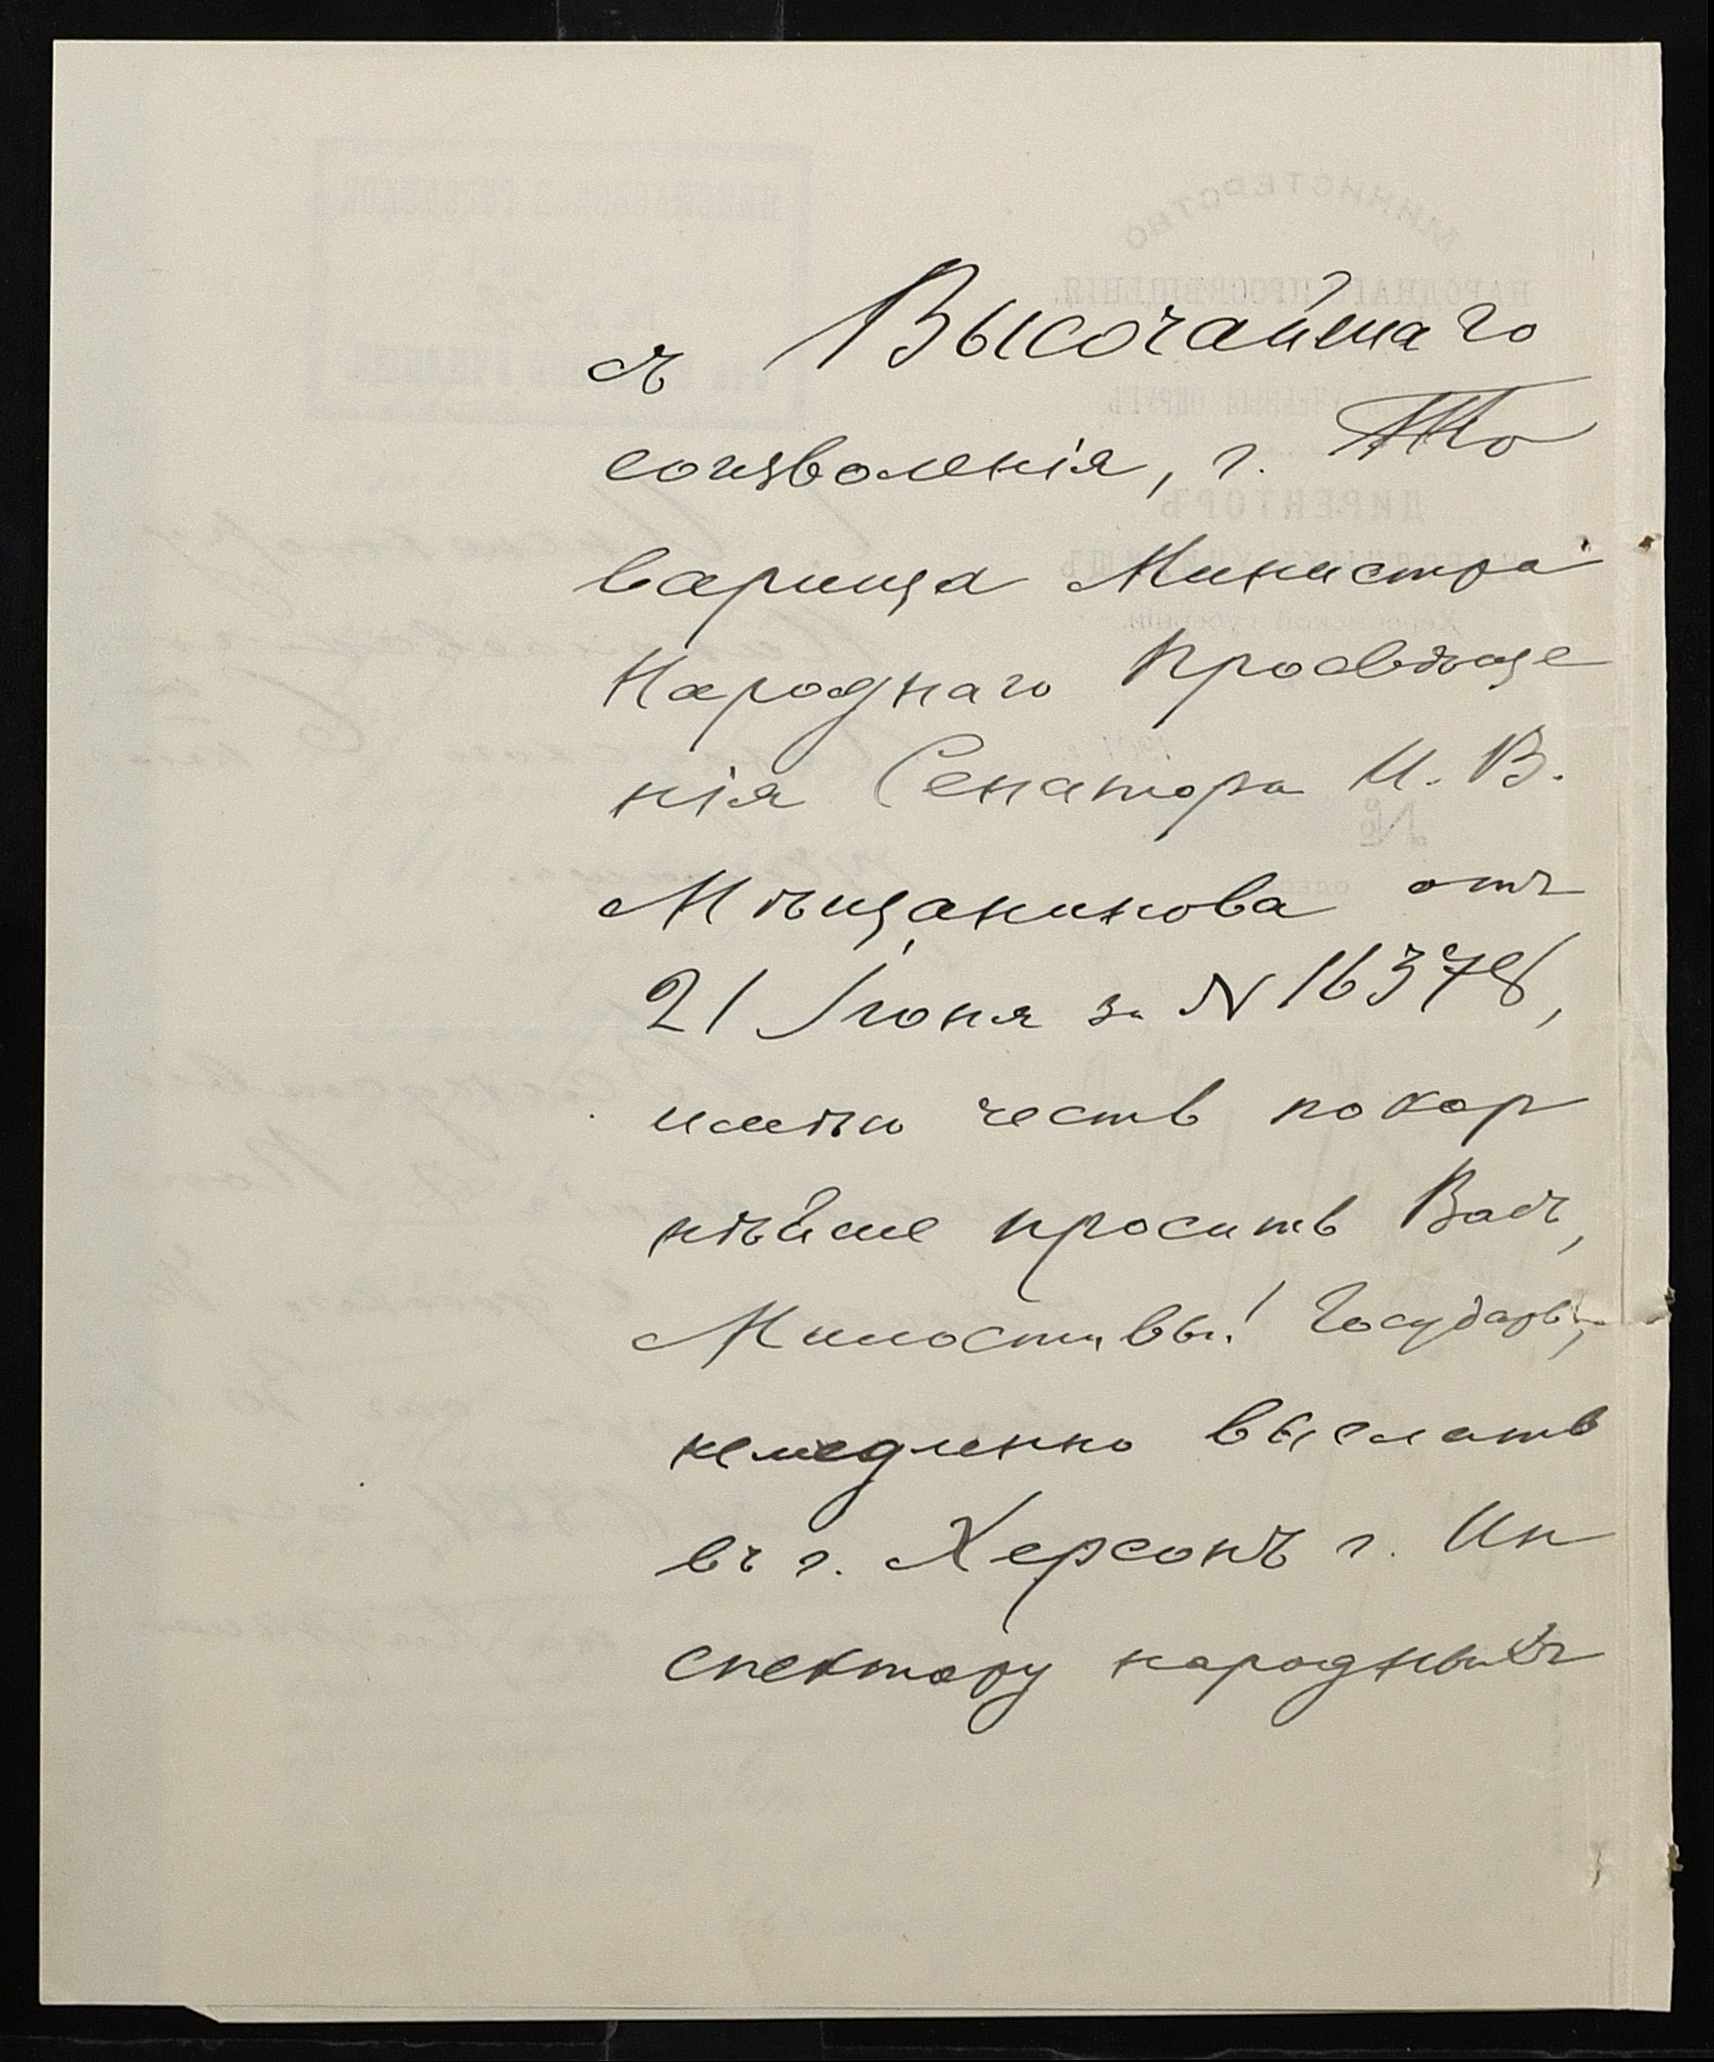 съ Высочайшаго
соизволенія, г. То
варища Министра
Народнаго Просвѣще
нія Сенатора И. В.
Мѣщанинова отъ
21 Іюня за N 16378,
имѣю честь покор
нѣйше просить Васъ,
Милостивый Государь,
немедленно выслать
въ г. Херсонъ г. Ин
спектору народныхъ